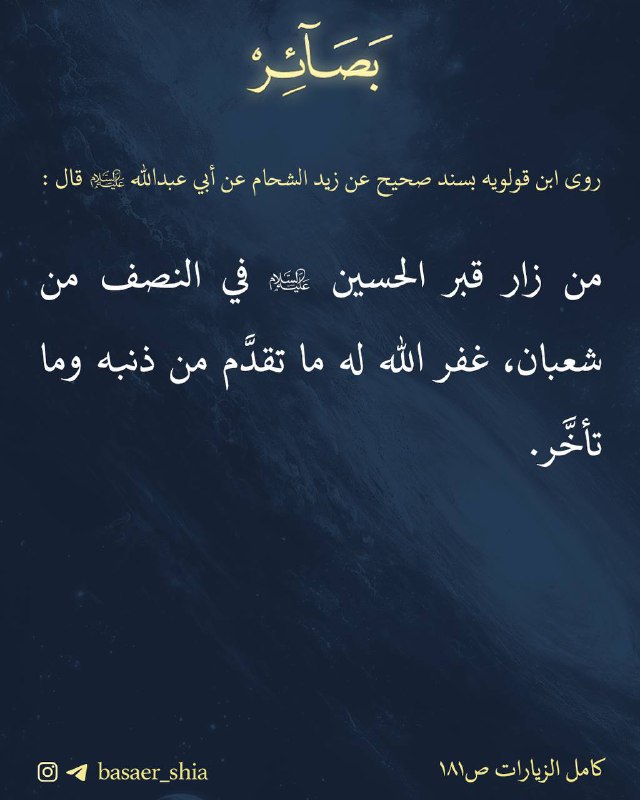 بَصَآئِرْ
روى ابن قولويه بسند صحيح عن زيد الشحام عن أبي عبدالله عليه السلام قال :
من زار قبر الحسين عليه السلام في النصف من
شعبان، غفر الله له ما تقدَّم من ذنبه وما
تأخَّر.
كامل الزيارات ص١٨١
basaer_shia